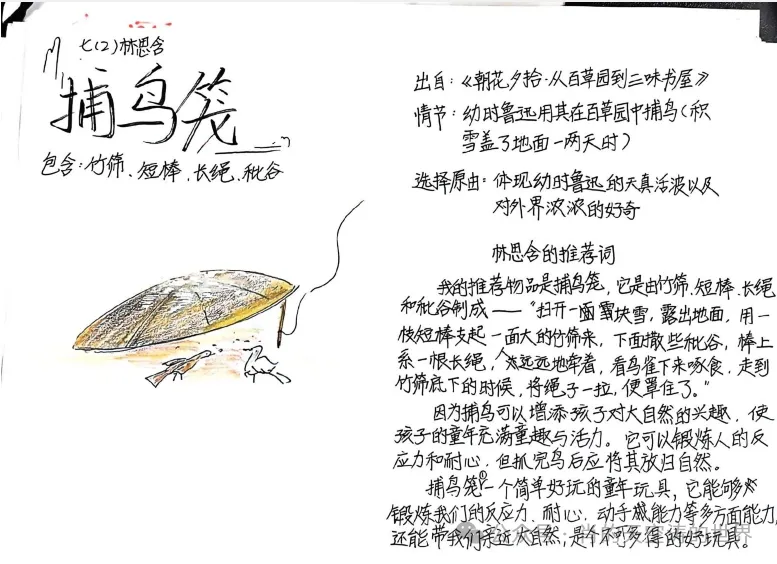 七(2)林思含
捕鸟笼
包含:竹筛、短棒、长绳、秕谷
出自:《朝花夕拾·从百草园到三味书屋》
情节:幼时鲁迅用其在百草园中捕鸟(积
雪盖了地面一两天时)
选择原由:体现幼时鲁迅的天真活波以及
对外界浓浓的好奇
林思含的推荐词
我的推荐物品是捕鸟笼,它是由竹筛、短棒、长绳
和秕谷制成——“扫开一块雪,露出地面,用一
枝短棒支起一面大的竹筛来,下面撒些秕谷,棒上
系一根长绳,人远远地牵着,看鸟雀下来啄食,走到
竹筛底下的时候,将绳子一拉,便罩住了。”
因为捕鸟可以增添孩子对大自然的兴趣,使
孩子的童年充满童趣与活力。它可以锻炼人的反
应力和耐心,但抓完鸟后应将其放归自然。
捕鸟笼是一个简单好玩的童年玩具,它能够
锻炼我们的反应力、耐心、动手能力等多方面能力,
还能带我们亲近大自然,是个不可多得的好玩具。
公众号